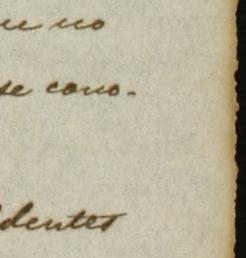 ue no
se cono-
dentes